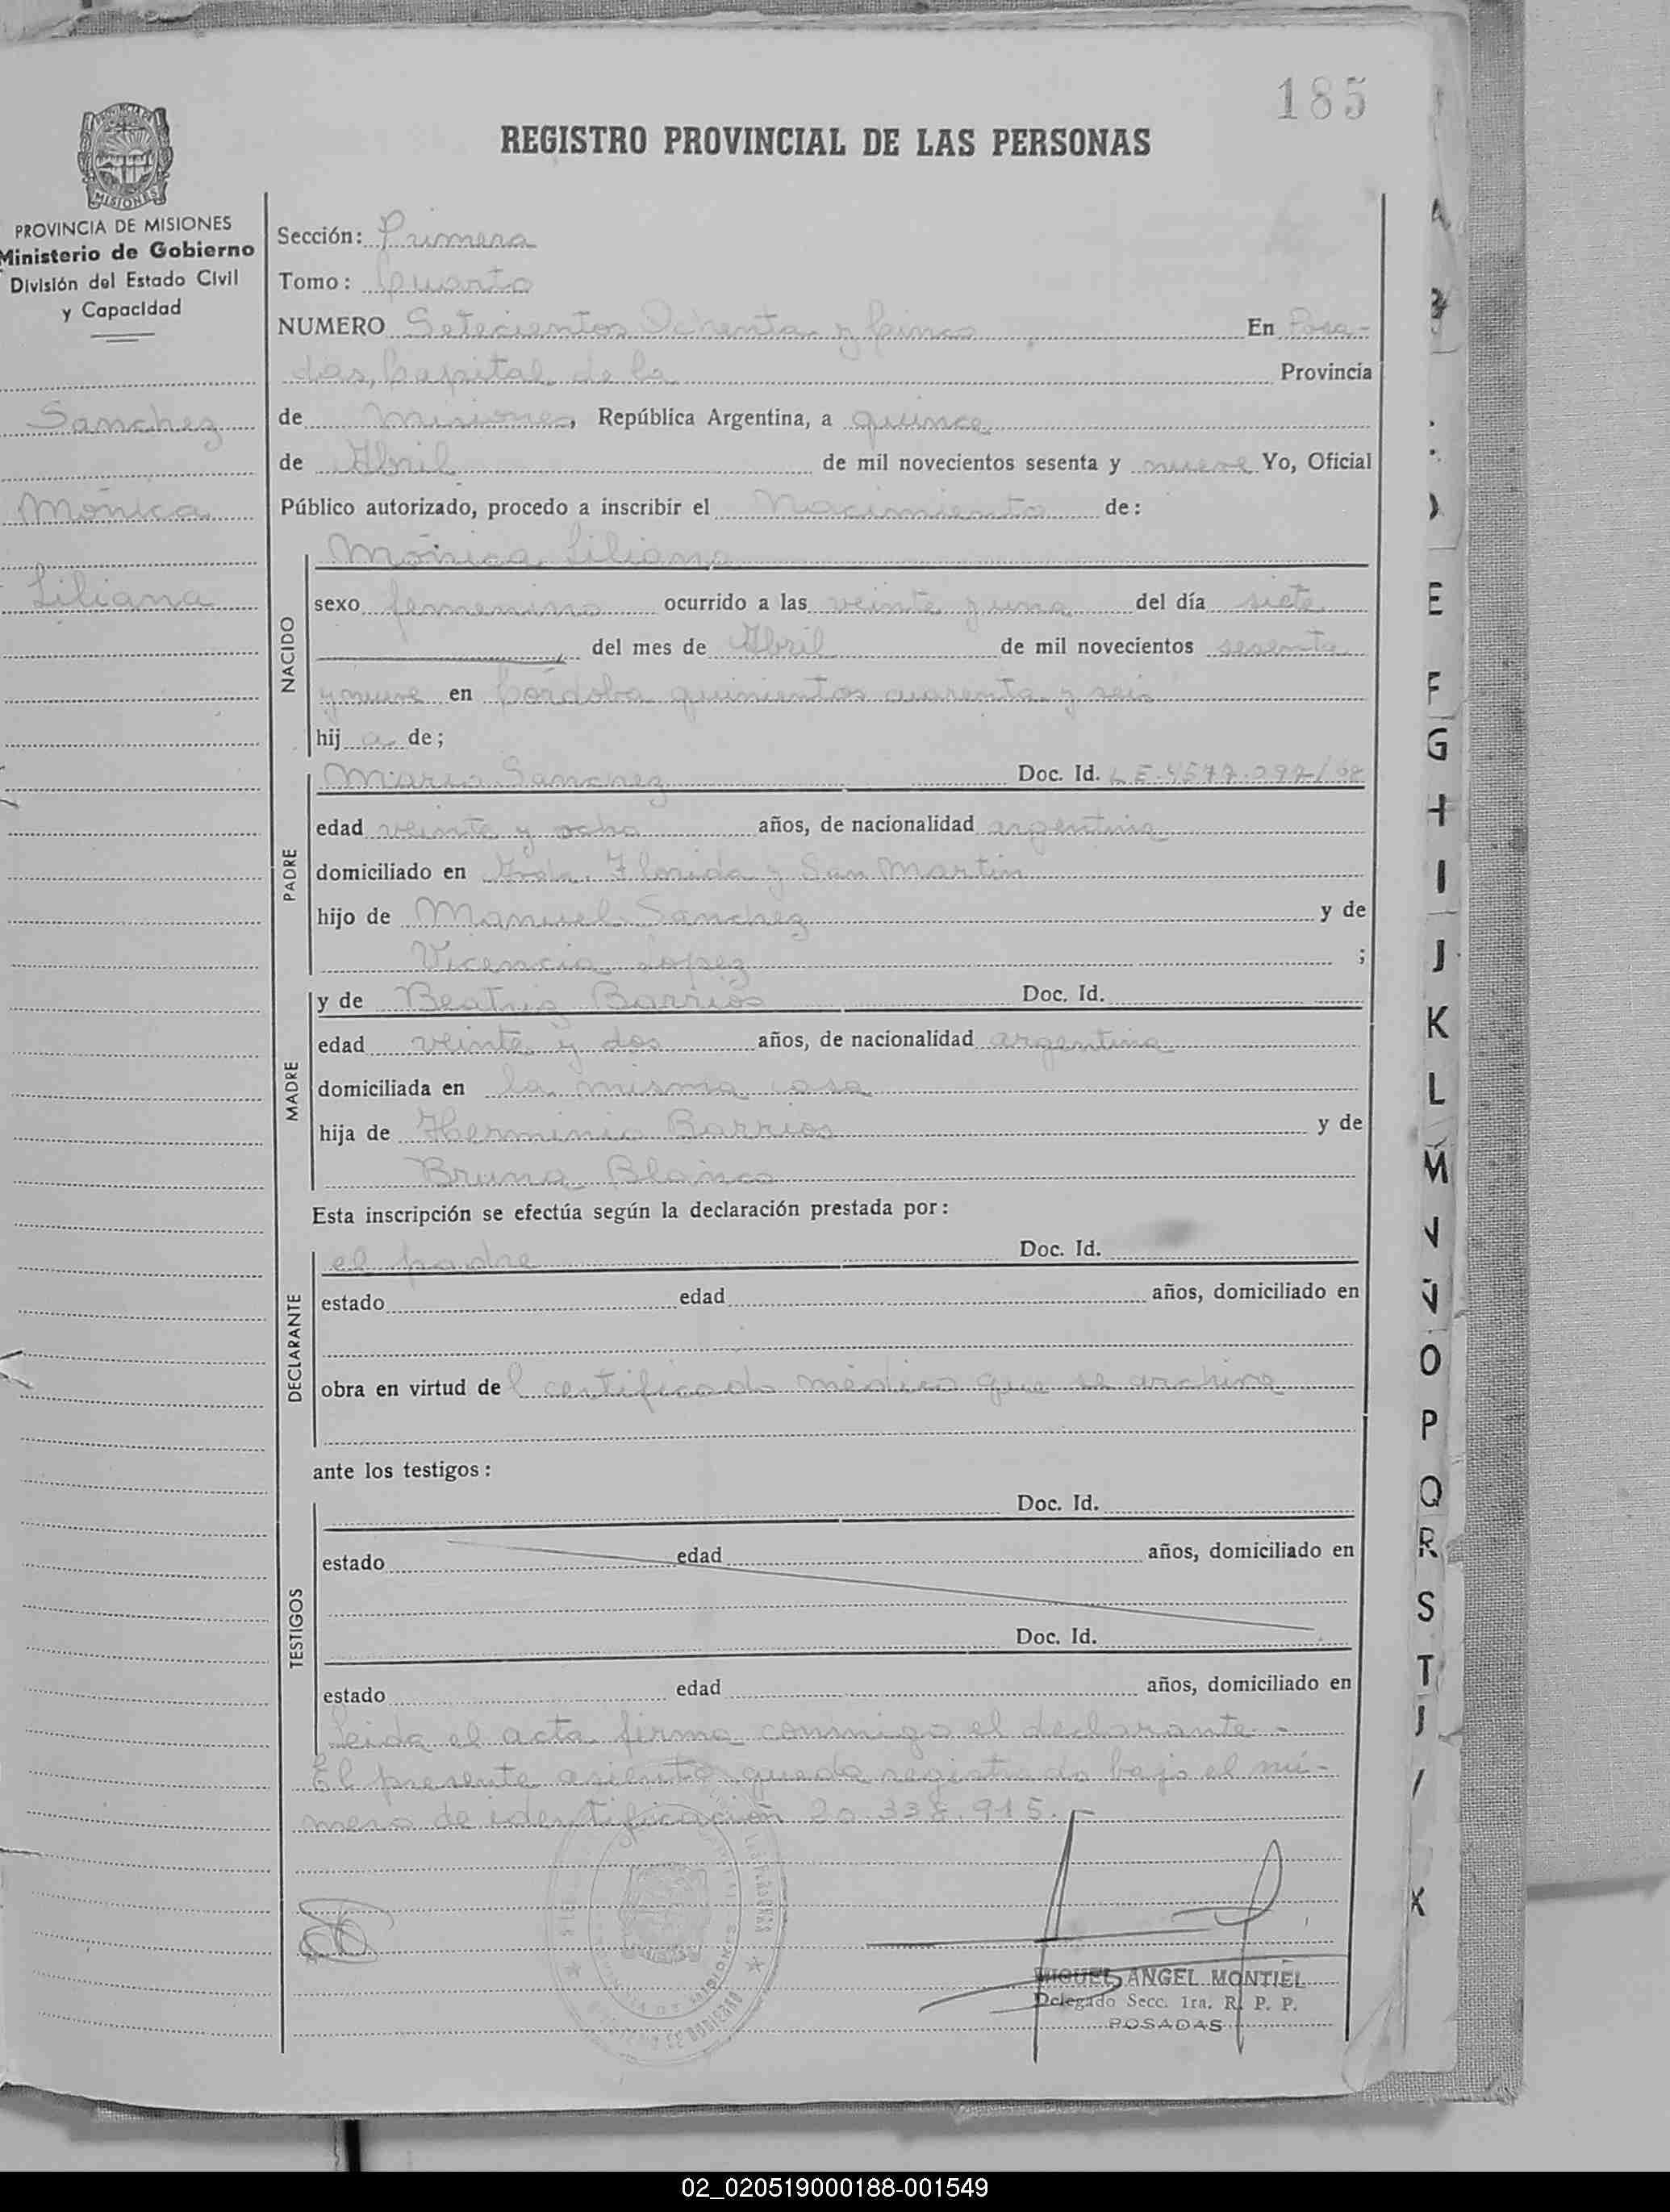 185
REGISTRO PROVINCIAL DE LAS PERSONAS
MISIONES
PROVINCIA DE MISIONES
Ministerio de Gobierno
División del Estado Civil
y Capacidad
Sanchez
Mónica
Liliana
Sección: Primera
Tomo: Cuarto
NUMERO Setecientos Ochenta y Cinco En Posa-
das, Capital de la Provincia
de Misiones, República Argentina, a quince
de Abril de mil novecientos sesenta y nueve Yo, Oficial
Público autorizado, procedo a inscribir el Nacimiento de:
NACIDO
Mónica Liliana
sexo femenino ocurrido a las veinte y una del día siete
del mes de Abril de mil novecientos sesenta
y nueve en Córdoba quinientos cuarenta y seis
hij a de;
PADRE
Mario Sanchez Doc. Id. L E.
edad veinte y ocho años, de nacionalidad argentina
domiciliado en Florida y San Martin
hijo de Manuel Sanchez y de
Vicencia Lopez ;
MADRE
y de Beatriz Barrios Doc. Id.
edad veinte y dos años, de nacionalidad argentina
domiciliada en la misma casa
hija de Herminio Barrios y de
Bruna Blanco
Esta inscripción se efectúa según la declaración prestada por:
DECLARANTE
el padre Doc. Id.
estado edad años, domiciliado en
obra en virtud del certificado médico que se archiva
ante los testigos:
TESTIGOS
Doc. Id.
estado edad años, domiciliado en
Doc. Id.
estado edad años, domiciliado en
Leida el acta firma conmigo el declarante.-
El presente asiento queda registrado bajo el nú-
mero de identificación 20.338.915.-
MIGUEL ANGEL MONTIEL
Delegado Secc. 1ra. R. P. P.
POSADAS
E
F
G
H
I
J
K
L
M
N
O
P
Q
R
S
T
02_020519000188-001549